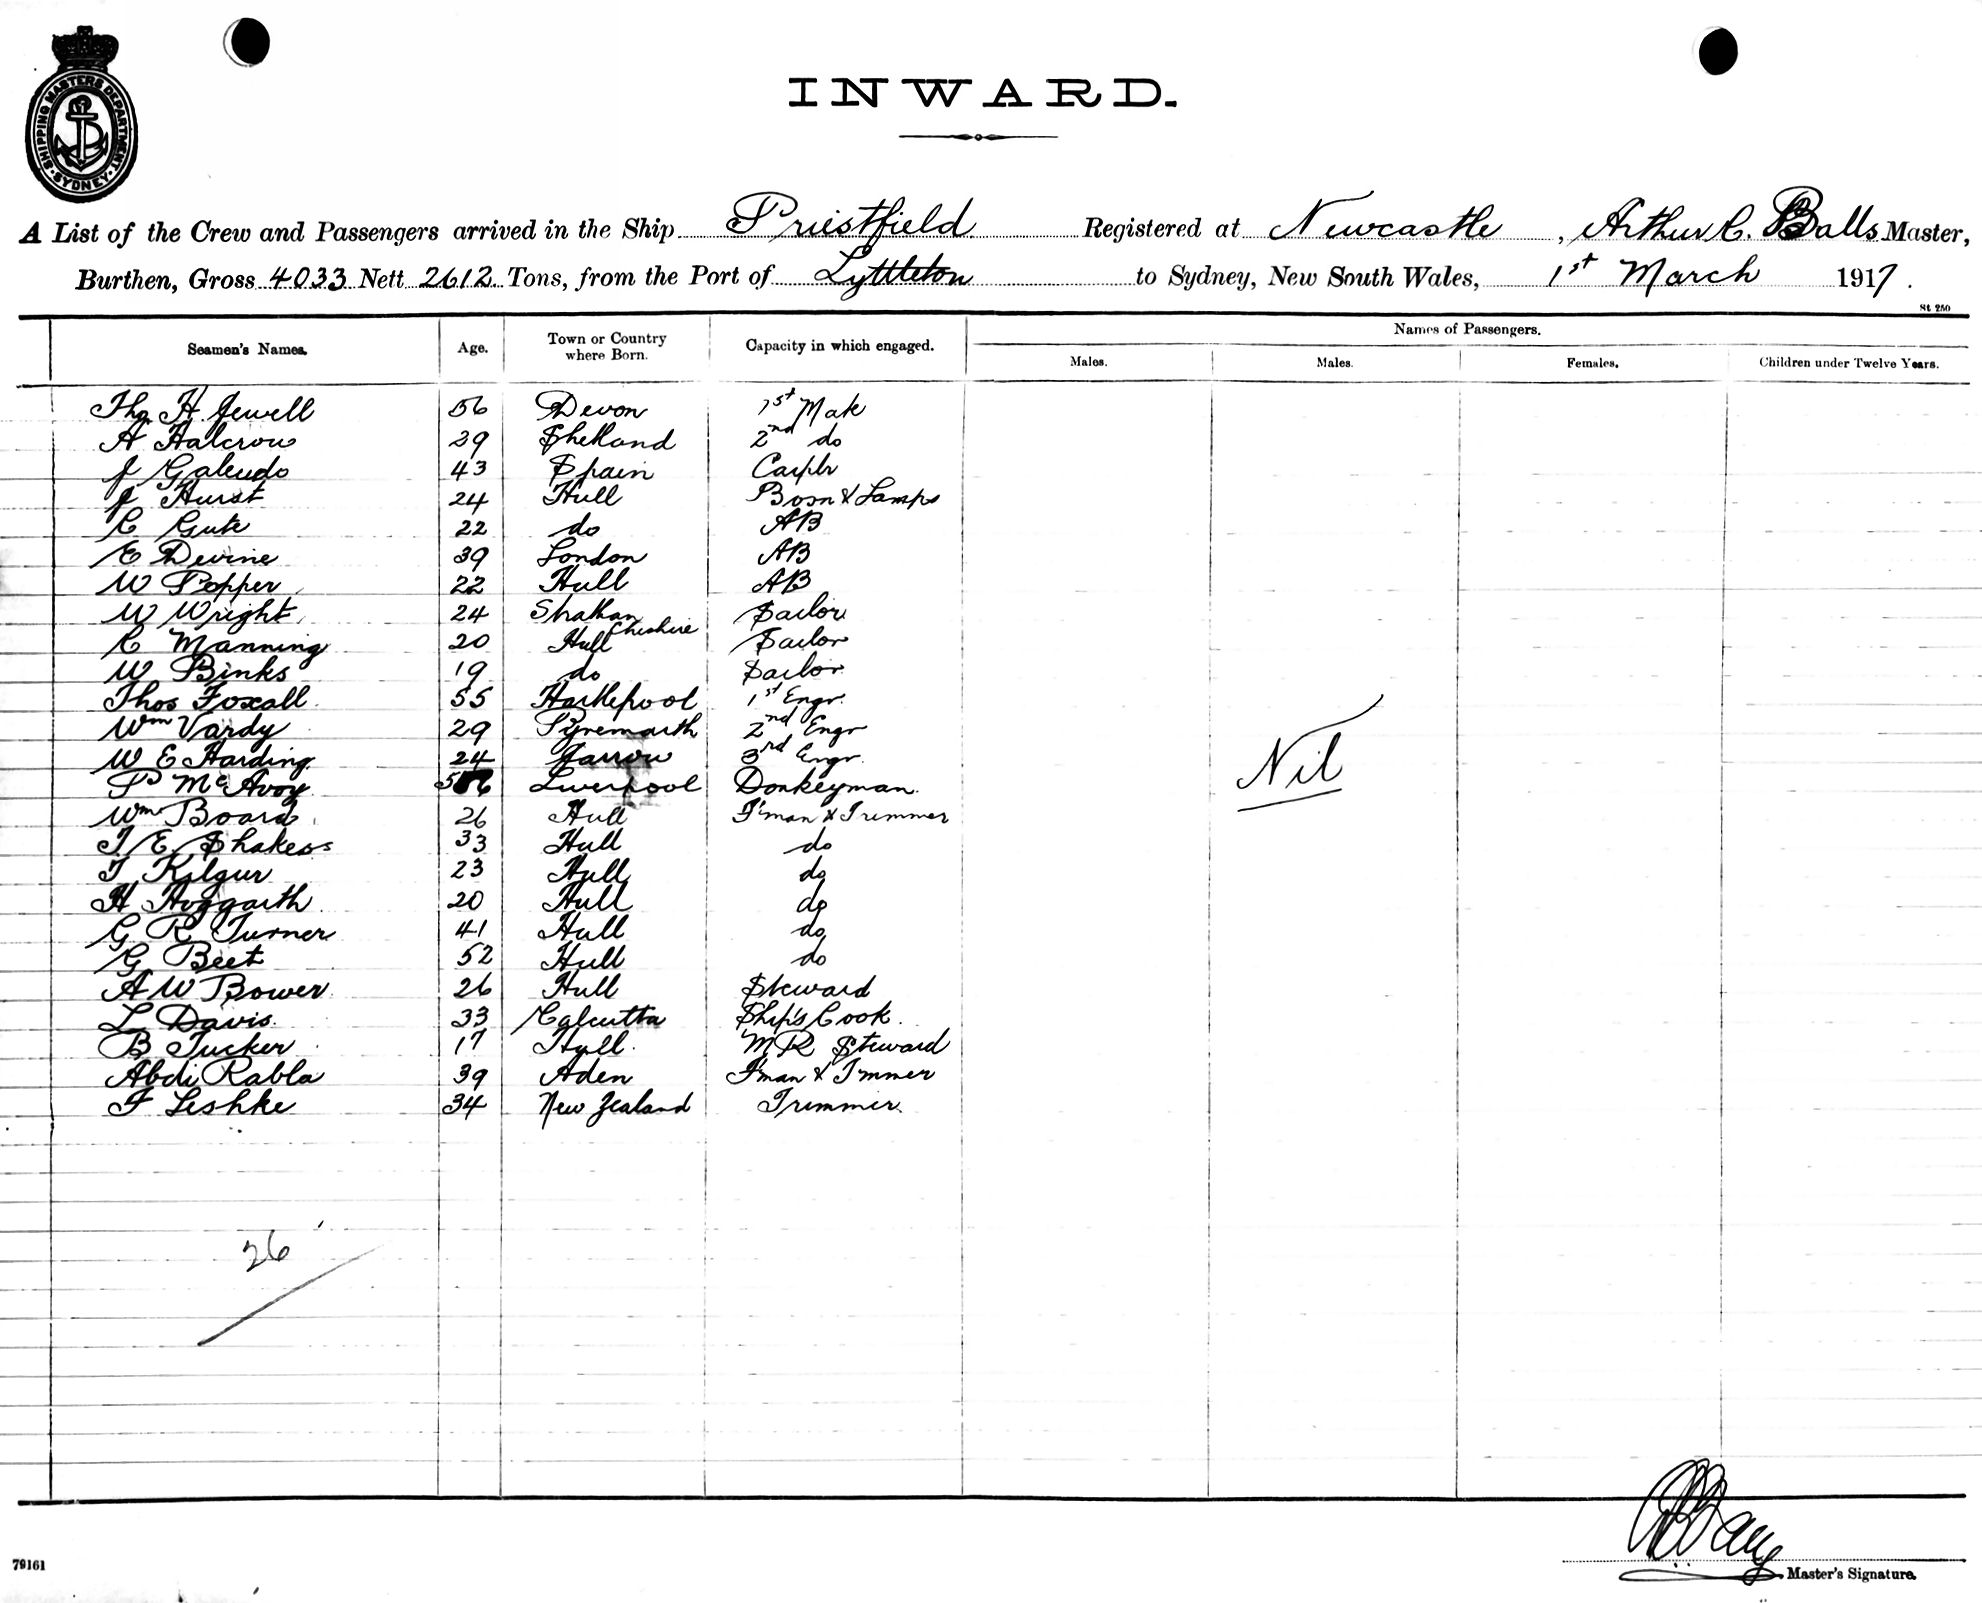 SHIPPING MASTERS DEPARTMENT · SYDNEY ·
INWARD.
A List of the Crew and Passengers arrived in the Ship Priestfield Registered at Newcastle, Arthur C. Balls Master,
Burthen, Gross 4033 Nett 2612 Tons, from the Port of Lyttleton to Sydney, New South Wales, 1st March 1917.
St 250
Seamen's Names. Age. Town or Country where Born. Capacity in which engaged. Names of Passengers.
Males. Males. Females. Children under Twelve Years.
Thos H. Jewell 56 Devon 1st Mate
A Halcrow 29 Shetland 2nd do
J Galeudo 43 Spain Carptr
J Hurst 24 Hull Bosn & Lamps
C Gute 22 do AB
E Devine 39 London AB
W Pepper 22 Hull AB
W Wright 24 Cheshire Sailor
C Manning 20 Hull Sailor
W Binks 19 do Sailor
Thos Foxall 55 Hartlepool 1st Engr.
Wm Vardy 29 Tynemouth 2nd Engr
W E Harding 24 Jarrow 3rd Engr.
P McAvoy 56 Liverpool Donkeyman
Wm Board 26 Hull F'man & Trimmer
T E Shakess 33 Hull do
T Kilgur 23 Hull do
H Hoggarth 20 Hull do
G R Turner 41 Hull do
G Beet 52 Hull do
A W Bower 26 Hull Steward
L Davis 33 Calcutta Ship's Cook
B Tucker 17 Hull MR Steward
Abdi Rabla 39 Aden F'man & T'mmer
F Leshke 34 New Zealand Trimmer
Nil
26
79161
Master's Signature.